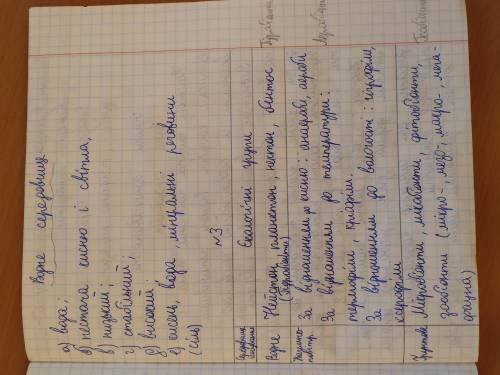 Водне середовище
а) вода;
б) нестача кисню і світла;
в) низький;
г) стабільний;
д) високий;
е) кисень, вода, мінеральні речовини
(солі)
№3
Середовище Екологічні групи
Водне Нейстон, планктон, нектон, бентос
(гідробіонти)
Наземно-повітр. За відношенням до кисню: анаероби, аероби
За відношенням до температури:
термофіли, кріофіли.
За відношенням до вологості: гігрофіли,
ксерофіли
Ґрунтове Мікробіонти, мікобіонти, фітобіонти,
зообіонти (мікро-, мезо-, макро-, мега-
фауна)